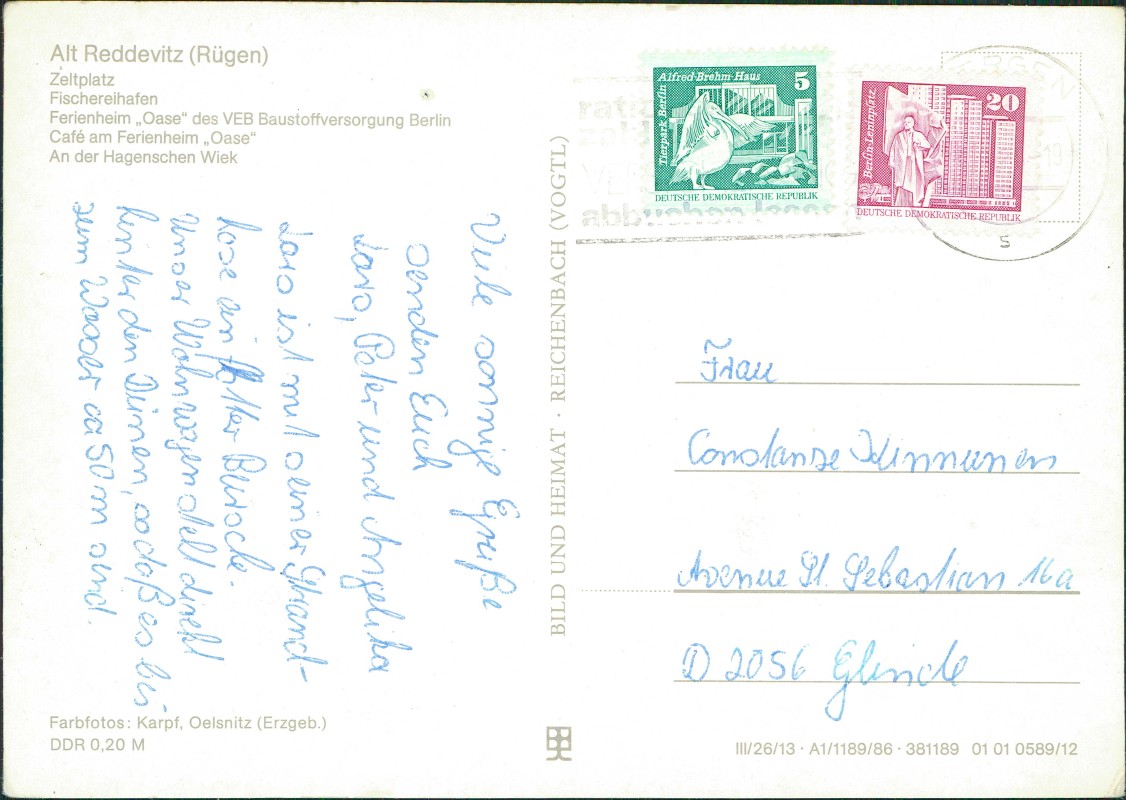 Alt Reddevitz (Rügen)
Zeltplatz
Fischereihafen
Ferienheim „Oase“ des VEB Baustoffversorgung Berlin
Café am Ferienheim „Oase“
An der Hagenschen Wiek
Viele sonnige Grüße
senden Euch
Jaro, Peter und Angelika
Jaro ist mit seiner Strand-
hose ein flotter Bursche.
Unser Wohnwagen steht direkt
hinter den Dünen, sodaß es bis
zum Wasser ca 50 m sind.
Farbfotos: Karpf, Oelsnitz (Erzgeb.)
DDR 0,20 M
BILD UND HEIMAT · REICHENBACH (VOGTL)
Tierpark Berlin
Alfred-Brehm-Haus
5
DEUTSCHE DEMOKRATISCHE REPUBLIK
Berlin-Leninplatz
20
DEUTSCHE DEMOKRATISCHE REPUBLIK
abbuchen lassen
S
Frau
Constanze
Avenue St. Sebastian 16a
D 2056 Glinde
III/26/13 · A1/1189/86 · 381189 01 01 0589/12